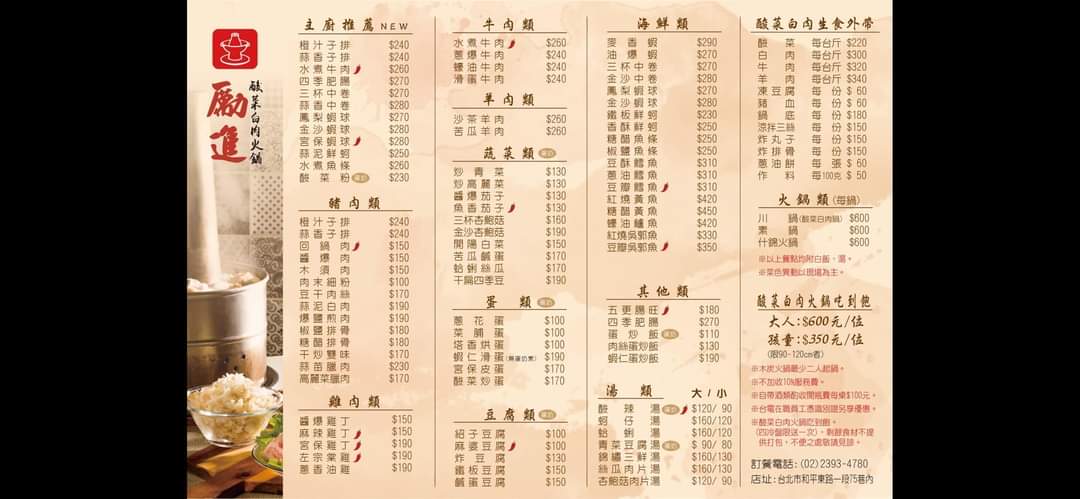 勵進
酸菜白肉火鍋
主廚推薦 NEW
橙汁子排 $240
蒜香子排 $240
水煮牛肉 $260
四季肥腸 $270
三杯中卷 $270
蒜香中卷 $280
鳳梨蝦球 $270
金沙蝦球 $280
宮保蝦球 $280
蒜泥鮮蚵 $250
水煮魚條 $260
酸菜炒粉 $230
豬肉類
橙汁子排 $240
蒜香子排 $240
回鍋肉 $150
醬爆肉 $150
木須肉 $150
肉末細粉 $100
豆干肉絲 $170
蒜泥白肉 $190
爆鹽煎肉 $190
椒鹽排骨 $180
糖醋排骨 $180
干炒雙味 $170
蒜苗臘肉 $230
高麗菜臘肉 $170
雞肉類
醬爆雞丁 $150
麻辣雞丁 $150
宮保雞丁 $150
左宗棠雞 $190
蔥香油雞 $190
牛肉類
水煮牛肉 $260
蔥爆牛肉 $240
蠔油牛肉 $240
滑蛋牛肉 $240
羊肉類
沙茶羊肉 $260
苦瓜羊肉 $260
蔬菜類
炒青菜 $130
炒高麗菜 $130
醬爆茄子 $130
魚香茄子 $130
三杯杏鮑菇 $160
金沙杏鮑菇 $190
開陽白菜 $150
苦瓜鹹蛋 $170
蛤蜊絲瓜 $170
干扁四季豆 $190
蛋類
蔥花蛋 $100
菜脯蛋 $100
塔香烘蛋 $100
蝦仁滑蛋(無蛋奶素) $190
宮保皮蛋 $170
酸菜炒蛋 $170
豆腐類
紹子豆腐 $100
麻婆豆腐 $100
炸豆腐 $130
鐵板豆腐 $150
鹹蛋豆腐 $150
海鮮類
麥香蝦 $290
油爆蝦 $270
三杯中卷 $270
金沙中卷 $280
鳳梨蝦球 $270
金沙蝦球 $280
鐵板鮮蚵 $230
香酥鮮蚵 $250
糖醋魚條 $250
椒鹽魚條 $250
豆酥鱈魚 $310
蔥油鱈魚 $310
豆瓣鱈魚 $310
紅燒黃魚 $420
糖醋黃魚 $450
蠔油鱸魚 $420
紅燒吳郭魚 $330
豆瓣吳郭魚 $350
其他類
五更腸旺 $180
四季肥腸 $270
蛋炒飯 $110
肉絲蛋炒飯 $130
蝦仁蛋炒飯 $190
湯類 大/小
酸辣湯 $120/ 90
蚵仔湯 $160/120
蛤蜊湯 $160/120
青菜豆腐湯 $ 90/ 80
錦繡三鮮湯 $160/130
絲瓜肉片湯 $160/130
杏鮑菇肉片湯 $120/ 90
酸菜白肉生食外帶
酸菜 每台斤 $220
白肉 每台斤 $300
牛肉 每台斤 $320
羊肉 每台斤 $340
凍豆腐 每份 $ 60
豬血 每份 $ 60
鍋底 每份 $180
涼拌三絲 每份 $150
炸丸子 每份 $150
炸排骨 每份 $150
蔥油餅 每張 $ 60
作料 每100克 $ 50
火鍋類(每鍋)
川鍋(酸菜白肉鍋) $600
素鍋 $600
什錦火鍋 $600
※以上餐點均附白飯、湯。
※菜色異動以現場為主。
酸菜白肉火鍋吃到飽
大人:$600元/位
孩童:$350元/位
(限90-120cm者)
※木炭火鍋最少二人起鍋。
※不加收10%服務費。
※自帶酒類酌收開瓶費每桌$100元。
※台電在職員工憑識別證另享優惠。
※酸菜白肉火鍋吃到飽。
(四冷盤限送一次)，剩餘食材不提
供打包，不便之處敬請見諒。
訂餐電話:(02)2393-4780
店址:台北市和平東路一段75巷內